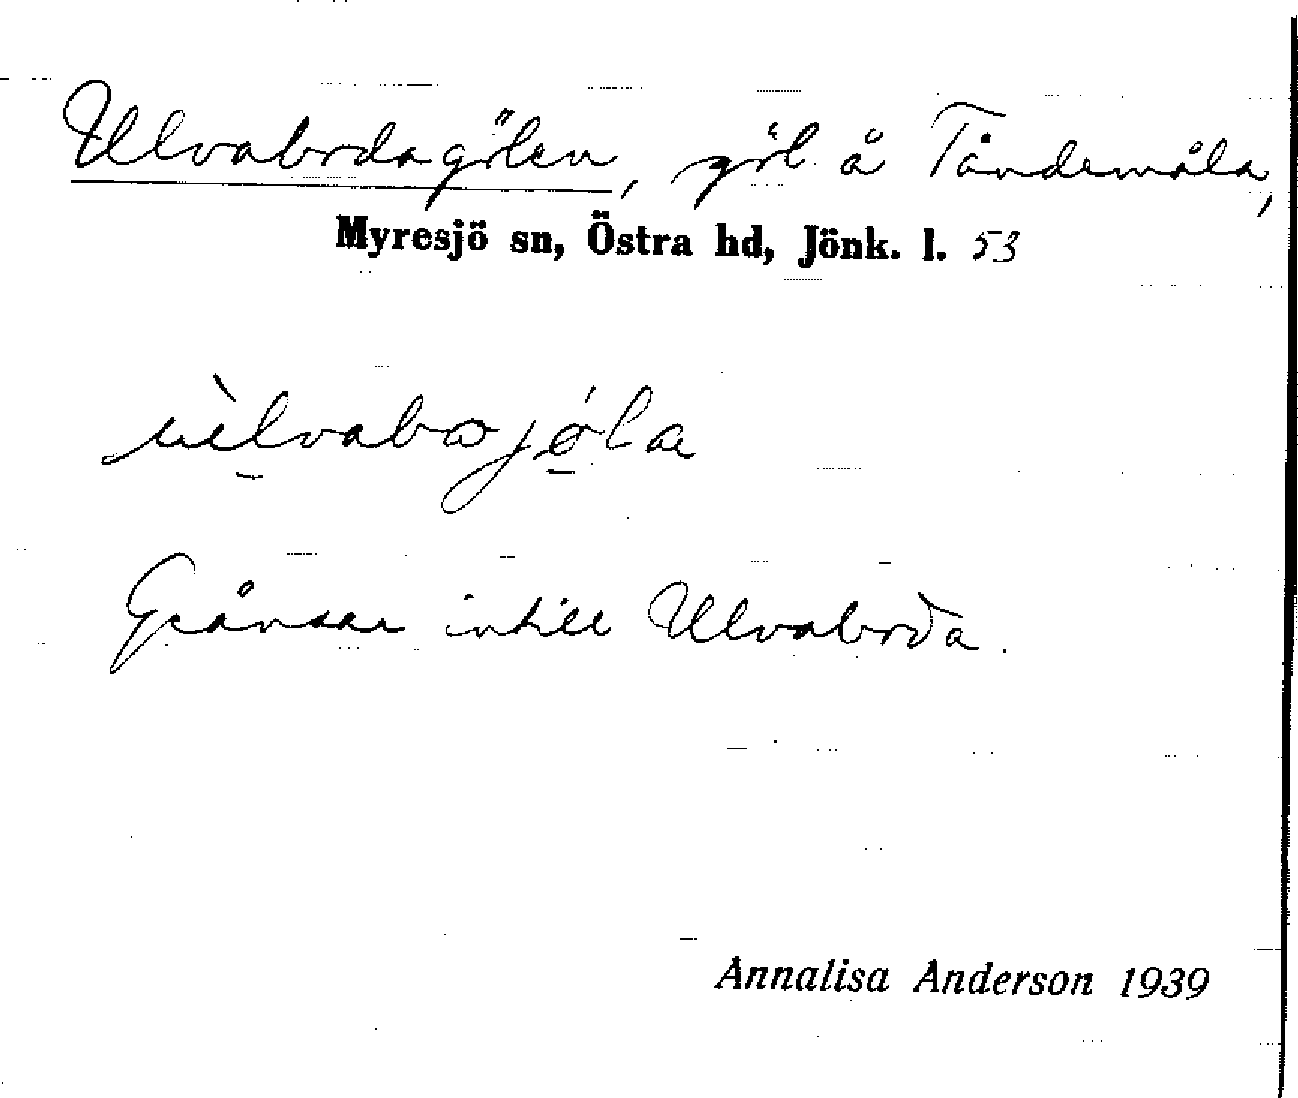 Ulvabodagölen, göl å Tåndemåla,
Myresjö sn, Östra hd, Jönk. l. 53
Gränsar intill Ulvaboda.
Annalisa Anderson 1939